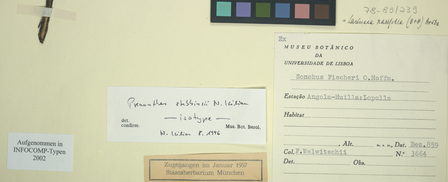 78-89/239
= Lactuca
Ex
MUSEU BOTÂNICO
DA
UNIVERSIDADE DE LISBOA
Sonchus Fischeri O.Hoffm.
Estação Angola-Huilla:Lopollo
Habitat
Alt. n. s. Dat. Dez.859
Col. F.Welwitschii N.º 3664
Det. Obs.
Prenanthes N. Kilian
det.
confirm. — isotype —
N. Kilian 8. 1996 Mus. Bot. Berol.
Aufgenommen in
INFOCOMP-Typen
2002
Zugegangen im Januar 1957
Staatsherbarium München